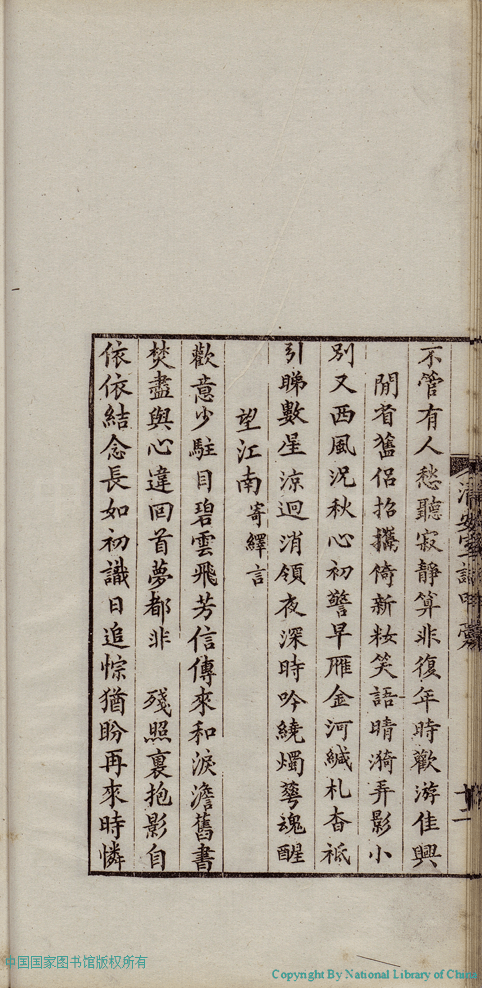 不管有人愁聽寂靜算非復年時歡游佳興
閒者舊侶招攜倚新妝笑語晴漪弄影小
別又西風況秋心初警早雁金河緘札杳祇
引睇數星涼迥消領夜深時吟繞燭蕚魂醒
望江南寄繹言
歡意少駐目碧雲飛芳信傳來和淚澹舊書
焚盡與心違回首夢都非　殘照裏抱影自
依依結念長如初識日追悰猶盼再來時憐
十一
中国国家图书馆版权所有
Copyright By National Library of China